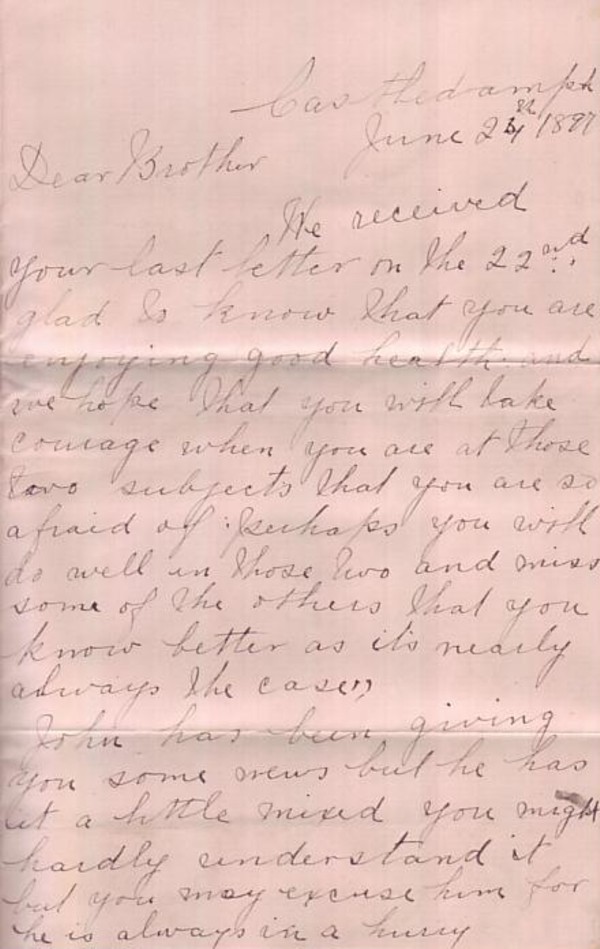 June 24th 1897
Dear Brother
We received
your last letter on the 22nd
glad to know that you are
enjoying good health and
we hope that you will take
courage when you are at those
two subjects that you are so
afraid of perhaps you will
do well in those two and miss
some of the others that you
know better as it's nearly
always the case,,
John has been giving
you some news but he has
it a little mixed you might
hardly understand it
but you may excuse him for
he is always in a hurry